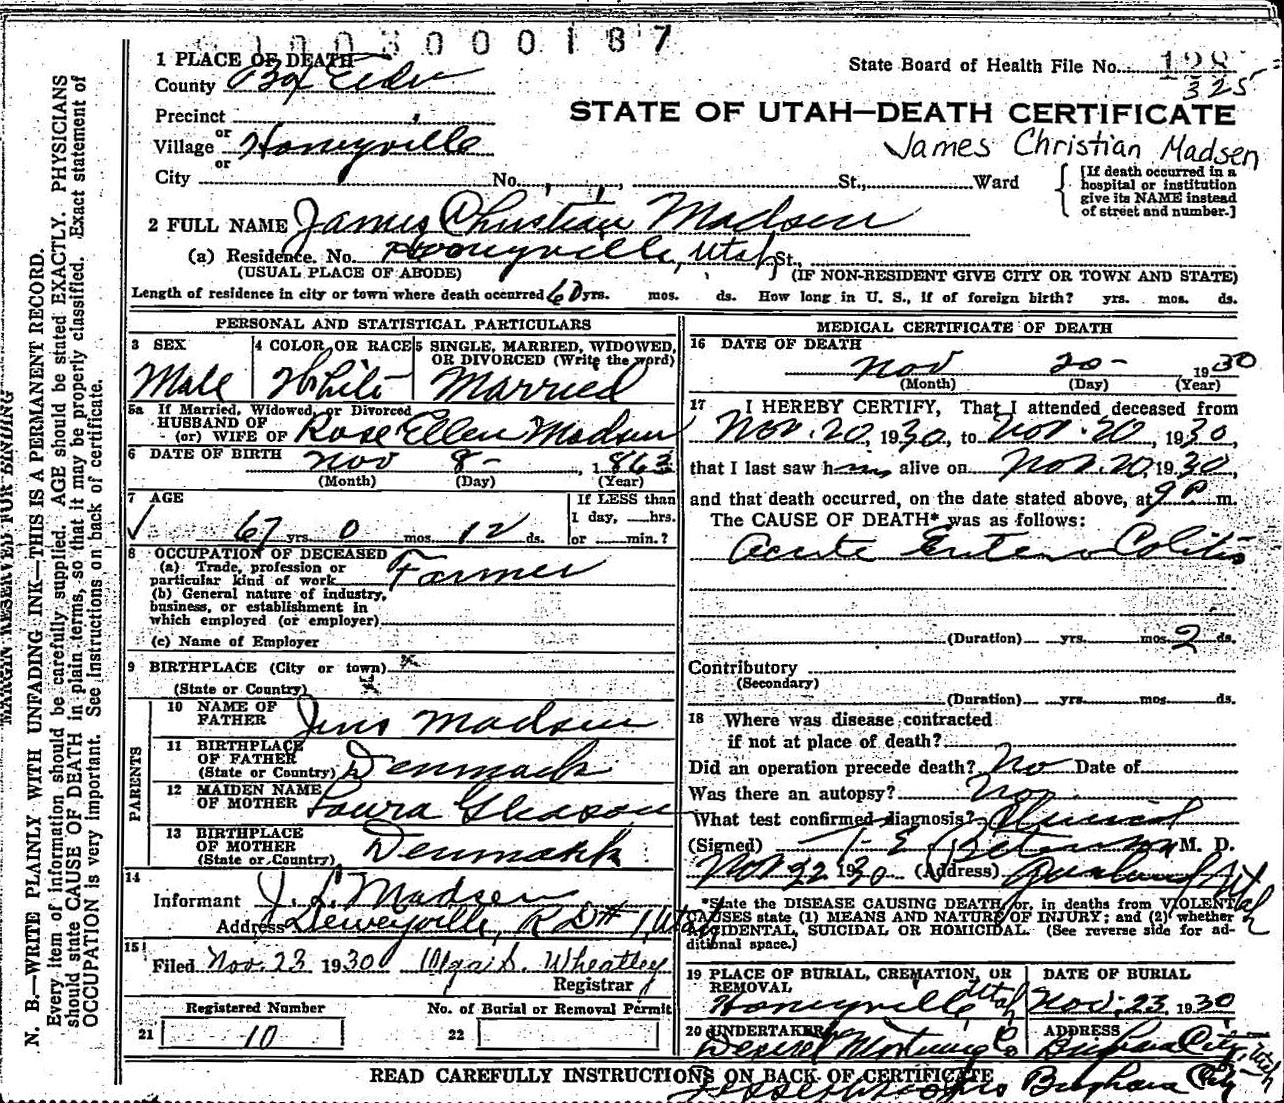 1003000187
1 PLACE OF DEATH
State Board of Health File No. 128
County Box Elder
325
Precinct
STATE OF UTAH—DEATH CERTIFICATE
or
Village Honeyville
James Christian Madsen
or
City No. St., Ward
[If death occurred in a
hospital or institution
give its NAME instead
of street and number.]
2 FULL NAME James Christian Madsen
(a) Residence. No. Honeyville, Utah St.,
(USUAL PLACE OF ABODE) (IF NON-RESIDENT GIVE CITY OR TOWN AND STATE)
Length of residence in city or town where death occurred 60 yrs. mos. ds. How long in U. S., if of foreign birth? yrs. mos. ds.
PERSONAL AND STATISTICAL PARTICULARS
3 SEX
Male
4 COLOR OR RACE
White
5 SINGLE, MARRIED, WIDOWED,
OR DIVORCED (Write the word)
Married
5a If Married, Widowed, or Divorced
HUSBAND OF
(or) WIFE OF Rose Ellen Madsen
6 DATE OF BIRTH Nov 8- , 1863
(Month) (Day) (Year)
7 AGE
67 yrs. 0 mos. 12 ds.
If LESS than
1 day, hrs.
or min.?
8 OCCUPATION OF DECEASED
(a) Trade, profession or
particular kind of work Farmer
(b) General nature of industry,
business, or establishment in
which employed (or employer)
(c) Name of Employer
9 BIRTHPLACE (City or town)
(State or Country)
PARENTS
10 NAME OF
FATHER Jens Madsen
11 BIRTHPLACE
OF FATHER
(State or Country) Denmark
12 MAIDEN NAME
OF MOTHER Laura
13 BIRTHPLACE
OF MOTHER
(State or Country) Denmark
14
Informant J. L. Madsen
Address Deweyville, R D # 1, Utah
15
Filed Nov. 23 1930 Olga S. Wheatley
Registrar
Registered Number
21 10
No. of Burial or Removal Permit
22
MEDICAL CERTIFICATE OF DEATH
16 DATE OF DEATH
Nov 20- 1930
(Month) (Day) (Year)
17 I HEREBY CERTIFY, That I attended deceased from
Nov. 20, 1930, to Nov. 20, 1930,
that I last saw him alive on Nov. 20, 1930,
and that death occurred, on the date stated above, at 9 P m.
The CAUSE OF DEATH* was as follows:
Acute Entero Colitis
(Duration) yrs. mos. 2 ds.
Contributory
(Secondary)
(Duration) yrs. mos. ds.
18 Where was disease contracted
if not at place of death?
Did an operation precede death? No Date of
Was there an autopsy? No
What test confirmed diagnosis? Clinical
(Signed) M. D.
Nov 22 1930 (Address) Garland Utah
*State the DISEASE CAUSING DEATH, or, in deaths from VIOLENT
CAUSES state (1) MEANS AND NATURE OF INJURY; and (2) whether
ACCIDENTAL, SUICIDAL OR HOMICIDAL. (See reverse side for ad-
ditional space.)
19 PLACE OF BURIAL, CREMATION, OR
REMOVAL
Honeyville Utah
DATE OF BURIAL
Nov. 23, 1930
20 UNDERTAKER
Deseret Mortuary Co
ADDRESS
Brigham City, Utah
Brigham City
READ CAREFULLY INSTRUCTIONS ON BACK OF CERTIFICATE
MARGIN RESERVED FOR BINDING
N. B.—WRITE PLAINLY WITH UNFADING INK—THIS IS A PERMANENT RECORD.
Every item of information should be carefully supplied. AGE should be stated EXACTLY. PHYSICIANS
should state CAUSE OF DEATH in plain terms, so that it may be properly classified. Exact statement of
OCCUPATION is very important. See instructions on back of certificate.